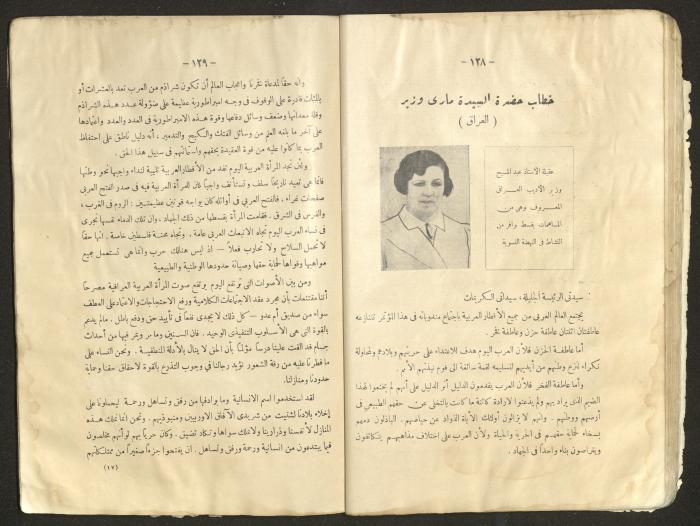 - ١٢٨ -
خطاب حضرة السيدة ماري وزير
( العراق )
عقيلة الاستاذ عبد المسيح
وزير الأديب العراقي
المعروف وهي من
المساهمات بقسط وافر من
النشاط في النهضة النسوية
سيدتي الرئيسة الجليلة، سيداتي الكريمات
يجتمع العالم العربي من جميع الأقطار العربية باجتماع مندوباته في هذا المؤتمر تتنازعه
عاطفتان اثنتان عاطفة حزن وعاطفة فخر
أما عاطفة الحزن فلأن العرب اليوم هدف للاعتداء على حريتهم وبلادهم ومحاولة
نكراء لنزع وطنهم من أيديهم لتسليمه لقمة سائغة الى قوم نبذتهم الأمم .
وأما عاطفة الفخر فلأن العرب يقدمون الدليل أثر الدليل على أنهم لم يخنعوا لهذا
الضيم الذي يراد بهم ولم يذعنوا لإرادة كائنة ما كانت بالتخلي عن حقهم الطبيعي في
أرضهم ووطنهم . وانهم لا يزالون أولئك الاباة الذواد عن حياضهم . الباذلون دمهم
بسخاء لحماية حقهم في الحرية والحياة ولأن العرب على اختلاف مذاهبهم يتكاتفون
ويتراصون بناء واحداً في الجهاد .
- ١٢٩ -
وانه حقاً لمدعاة فخرنا واعجاب العالم أن تكون شراذم من العرب تعد بالعشرات أو
بالمئات قادرة على الوقوف في وجه امبراطورية عظيمة على ضؤولة عدد هذه الشراذم
وقلة معداتها وضعف وسائل دفاعها وقوة هذه الامبراطورية في العدد والعدد واعتمادها
على آخر ما بلغه العلم من وسائل الفتك والتدمير ، أنه دليل ناطق على احتفاظ
العرب بما كانوا عليه من قوة العقيدة بحقهم واستماتتهم في سبيل هذا الحق .
ولئن نجد المرأة العربية اليوم تفد من الأقطار العربية تلبية لنداء واجبها نحو وطنها
فانما هي تعيد تاريخاً سلف وتستأنف واجباً كان للمرأة العربية فيه في صدر الفتح العربي
صفحات غراء ، فالفتح العربي في أوائله كان يواجه قوتين عظيمتين : الروم في الغرب ،
والفرس في الشرق . فقامت المرأة بقسطها من ذلك الجهاد ، وان تلك الدماء نفسها تجري
في نساء العرب اليوم تجاه الانبعاث العربي عامة . وتجاه محنة فلسطين خاصة . انها حقاً
لا تحمل السلاح ولا تحارب فعلاً — إذ ليس هنالك حرب وانما هي تستعمل جميع
مواهبها وقواها لحماية حقها وصيانة حدودها الوطنية والطبيعية
ومن بين الأصوات التي ترتفع اليوم يرتفع صوت المرأة العربية العراقية مصرحاً
أننا مقتنعات بأن مجرد عقد الاجتماعات الكلامية ورفع الاحتجاجات والاعتماد على العطف
سواء من صديق أم عدو — كل ذلك لا يجدي نفعاً في تأييد حق ودفع باطل . مالم يدعم
بالقوة التي هي الأسلوب التنفيذي الوحيد . فان السنين وما مر ويمر فيها من أحداث
جسام قد القت علينا درساً مؤلماً بأن الحق لا ينال بالأدلة المنطقية . ونحن النساء على
ما فطرنا عليه من رقة الشعور نؤيد رجالنا في وجوب التذرع بالقوة لاحقاق حقنا وحماية
حدودنا ومنازلنا.
لقد استخدموا اسم الانسانية وما يرادفها من رفق وتساهل ورحمة ليحملونا على
إخلاء بلادنا لشتيت من شريدي الآفاق الأوربيين ومنبوذيهم . ونحن إنما نملك هذه
المنازل لأنفسنا وذرارينا ولا نملك سواها وتكاد تضيق . وكان حرياً بهم لو أنهم مخلصون
فيما يبتدعون من انسانية ورحمة ورفق وتساهل . ان يفتحوا جزءاً صغيراً من ممتلكاتهم
(١٧)